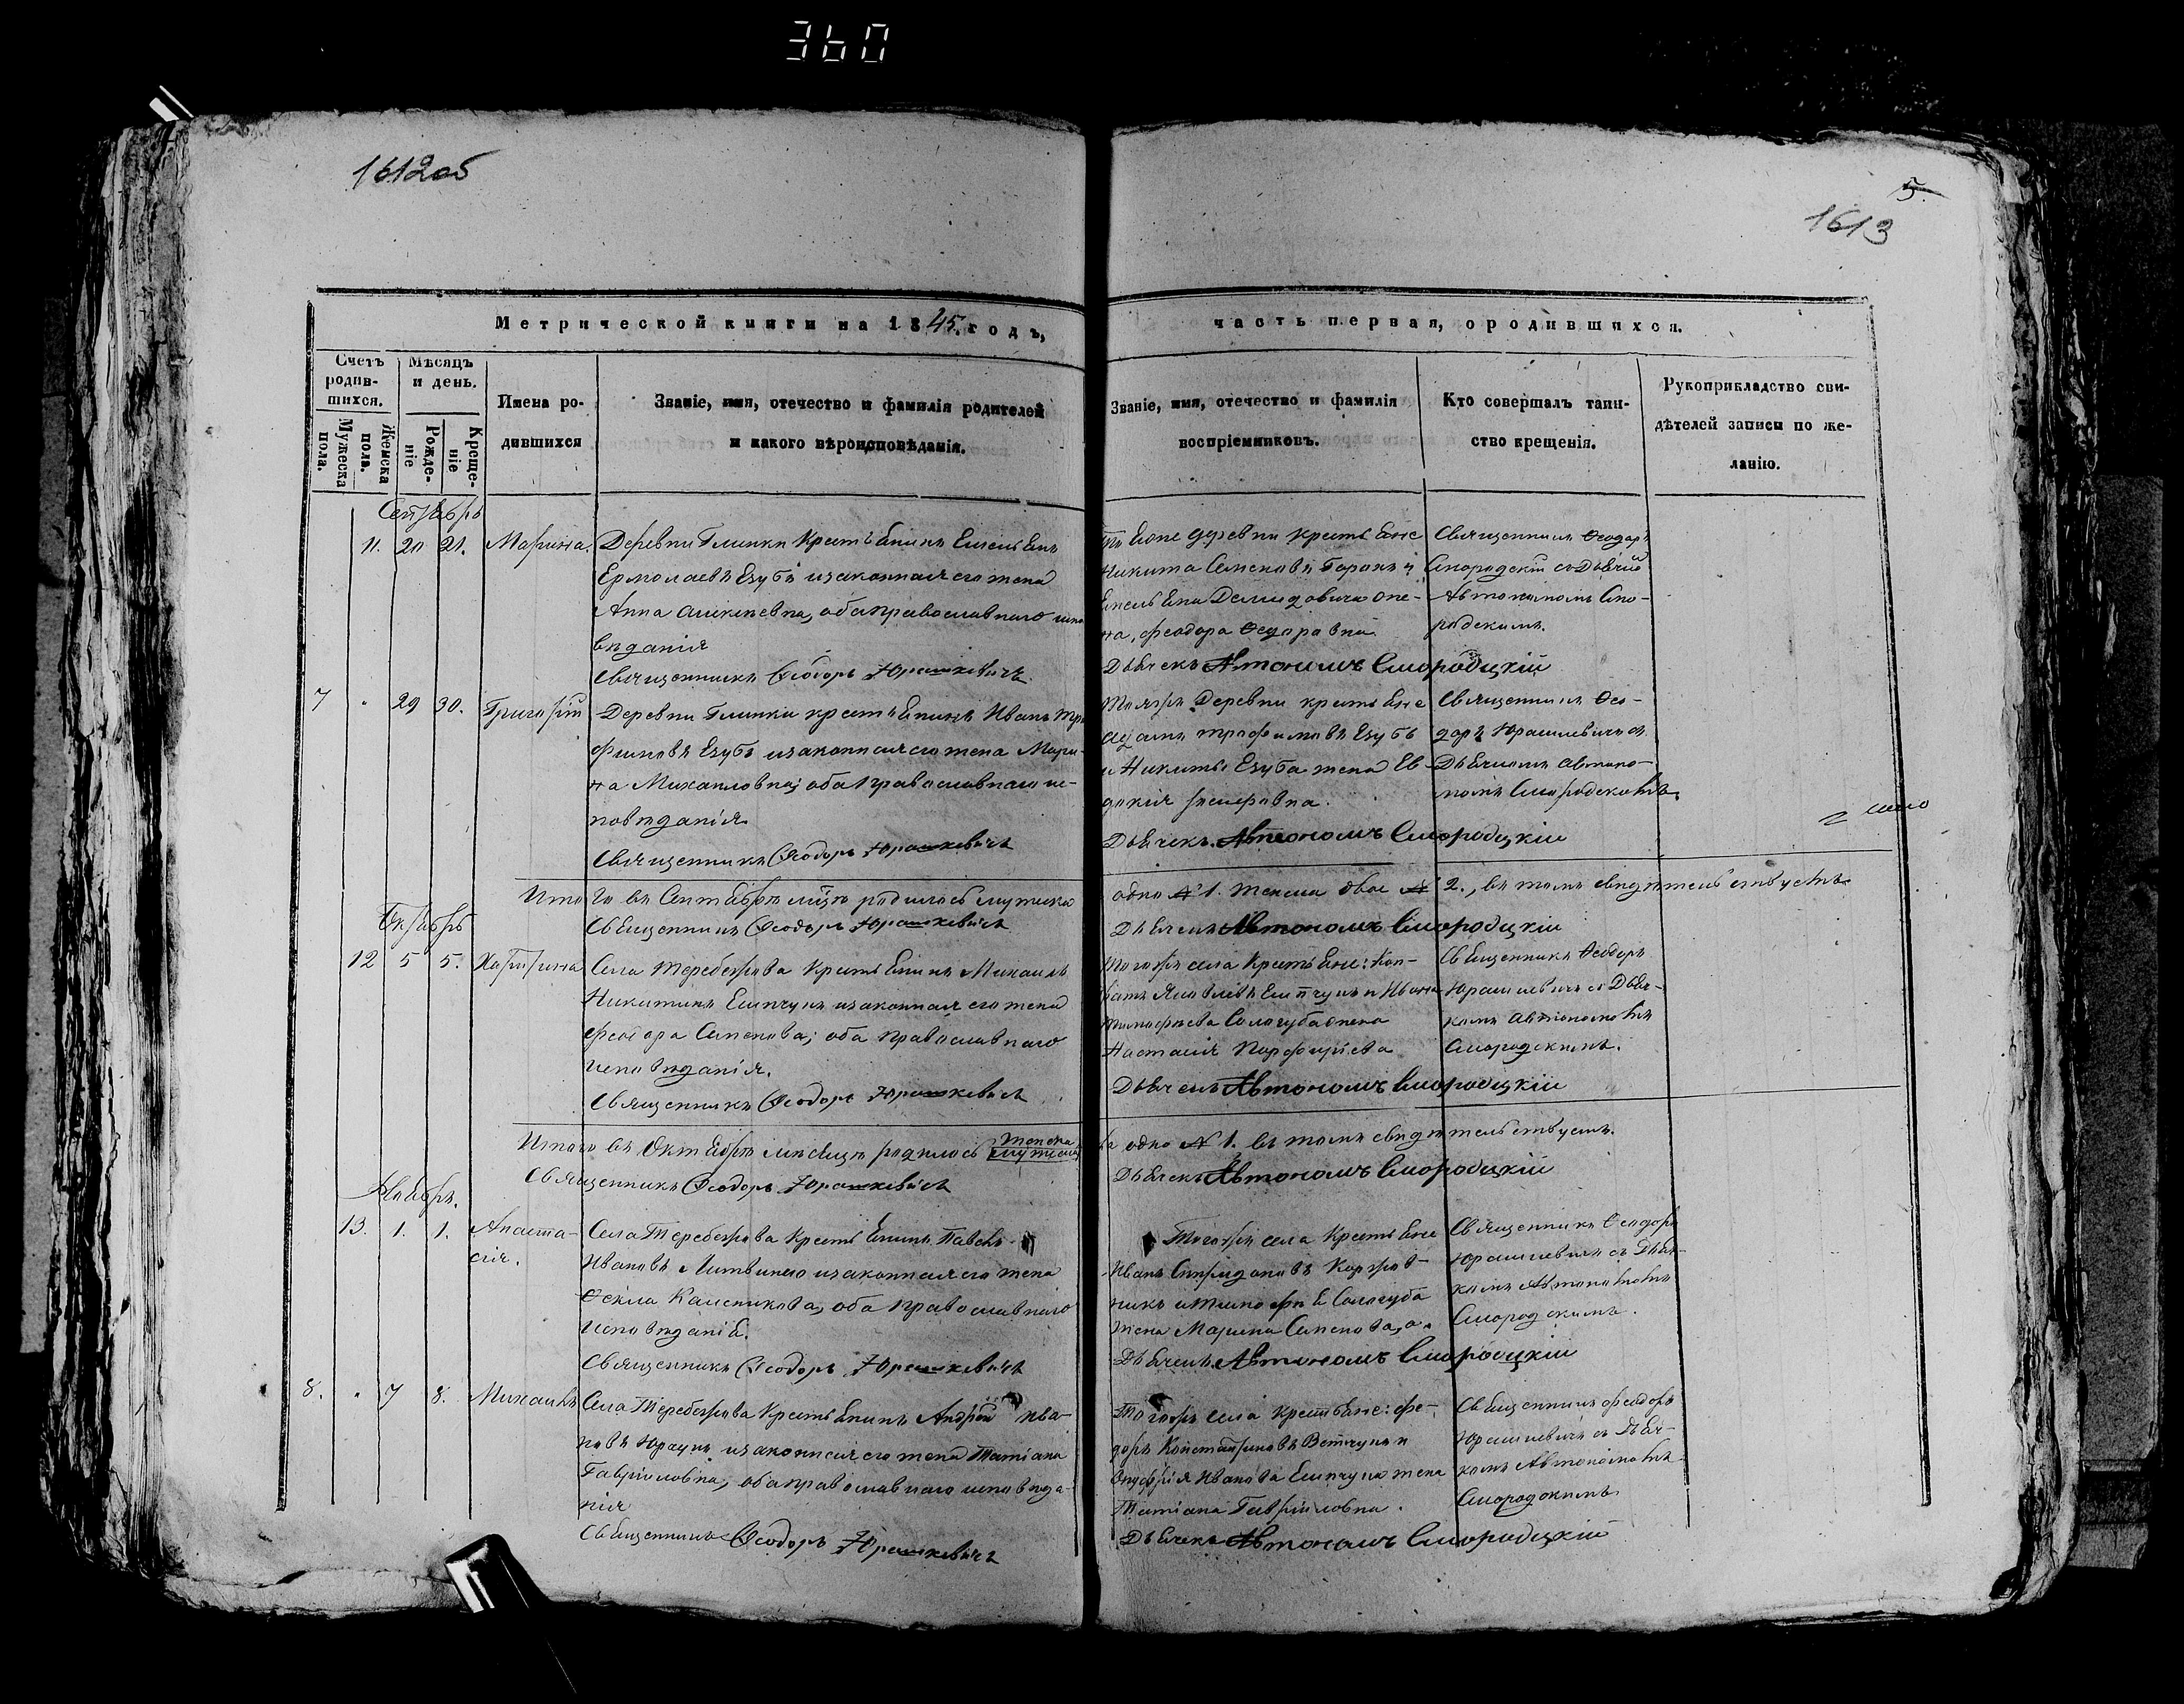 360
1612об
5.
1613
Метрической книги на 1845. годъ,
часть первая, о родившихся.
Счетъ родив-
шихся.
Мѣсяцъ
и день.
Мужеска
пола.
Женска
пола.
Рожде-
ніе
Креще-
ніе
Имена ро-
дившихся
Званіе, имя, отечество и фамилія родителей
и какого вѣроисповѣданія.
Званіе, имя, отечество и фамилія
воспріемниковъ.
Кто совершалъ таин-
ство крещенія.
Рукоприкладство сви-
дѣтелей записи по же-
ланію.
Сентябрь
11. 20 21. Марина.
Деревни Глинки Крестьянинъ Емельянъ
Ермолаевъ Езубъ и законная его жена
Анна оба православнаго испо
вѣданія
Священникъ Ѳеодоръ Юрашкевичъ
Тояже деревни крестьяне
Никита Семеновъ и
Емельяна Демидовича
на, Феодора Ѳедоровна
Дьячекъ Автономъ Смородскій
Священникъ Ѳеодоръ
съ Дьячко
Автономомъ Смо-
родскимъ.
7 " 29 30. Григорій
Деревни Глинки крестьянинъ Иванъ Тро
фимовъ Езубъ и законная его жена Мари-
на Михаиловна; оба православнаго ис-
повѣданія
Священникъ Ѳеодоръ Юрашкевичъ
Тояжъ Деревни крестьяне
Адамъ Трофимовъ Езубъ
и Никиты Езуба жена Ев-
докія
Дьячекъ Автономъ Смородскій
Священникъ Ѳео-
доръ Юрашкевичъ съ
Дьячкомъ Автоно-
момъ Смородскимъ.
Итого въ Сентябрѣ мѣсяцѣ родилось мужеска
одно № 1. женска двое № 2., въ томъ свидѣтельствуемъ
Священникъ Ѳеодоръ Юрашкевичъ
Дьячекъ Автономъ Смородскій
Октябрь
12 5 5. Харитина
Села Теребежова Крестьянинъ Михаилъ
Никитинъ Емпчукъ и законная его жена
Феодора Семенова; оба православнаго
исповѣданія.
Священникъ Ѳеодоръ Юрашкевичъ
Тогожъ села Крестьяне: Кон-
Яковлевъ Емпчукъ и Ивана
Тимофѣева Сологуба жена
Настасія Порфирьева
Дьячекъ Автономъ Смородскій
Священникъ Ѳеодоръ
Юрашкевичъ съ Дьяч-
комъ Автономомъ
Смородскимъ.
Итого въ Октябрѣ мѣсяцѣ родилось женска
мужеска
одно № 1. въ томъ свидѣтельствуемъ.
Священникъ Ѳеодоръ Юрашкевичъ
Дьячекъ Автономъ Смородскій
Ноябрь.
13. 1. 1. Анаста-
сія.
Села Теребежова Крестьянинъ Павелъ
Ивановъ Литвинко и законная его жена
Ѳекла Калениковa, оба православнаго
исповѣданія.
Священникъ Ѳеодоръ Юрашкевичъ
Тогожъ села Крестьяне
Иванъ Спиридоновъ Коржов-
никъ и Тимофѣя Сологуба
жена Марина Семенова,
Дьячекъ Автономъ Смородскій
Священникъ Ѳеодоръ
Юрашкевичъ съ Дьяч-
комъ Автономомъ
Смородскимъ.
8. " 7 8. Михаилъ
Села Теребежова Крестьянинъ Андрей Ива-
новъ Юрчукъ и законная его жена Татіана
Гавриловна, оба православнаго исповѣда-
нія
Священникъ Ѳеодоръ Юрашкевичъ
Тогожъ села крестьяне: Фе-
доръ Константиновъ Ветчукъ и
Онуфрія Иванова Емпчука жена
Татіана Гавриловна.
Дьячекъ Автономъ Смородскій
Священникъ Феодоръ
Юрашкевичъ съ Дьяч-
комъ Автономомъ
Смородскимъ